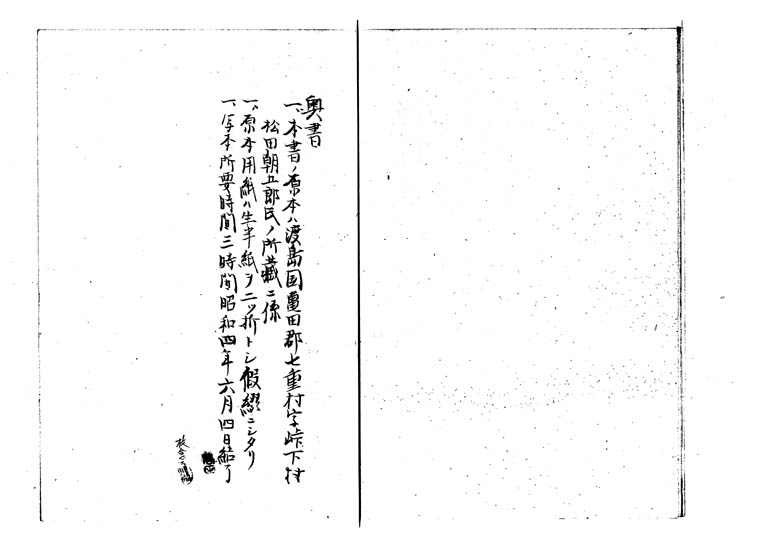 奥書
一、本書ノ原本ハ渡島国亀田郡七重村字峠下村
松田朝五郎氏ノ所蔵ニ係
一、原本用紙ハ生半紙ヲ二ッ折トシ假綴ニシタリ
一、写本所要時間三時間昭和四年六月四日結了